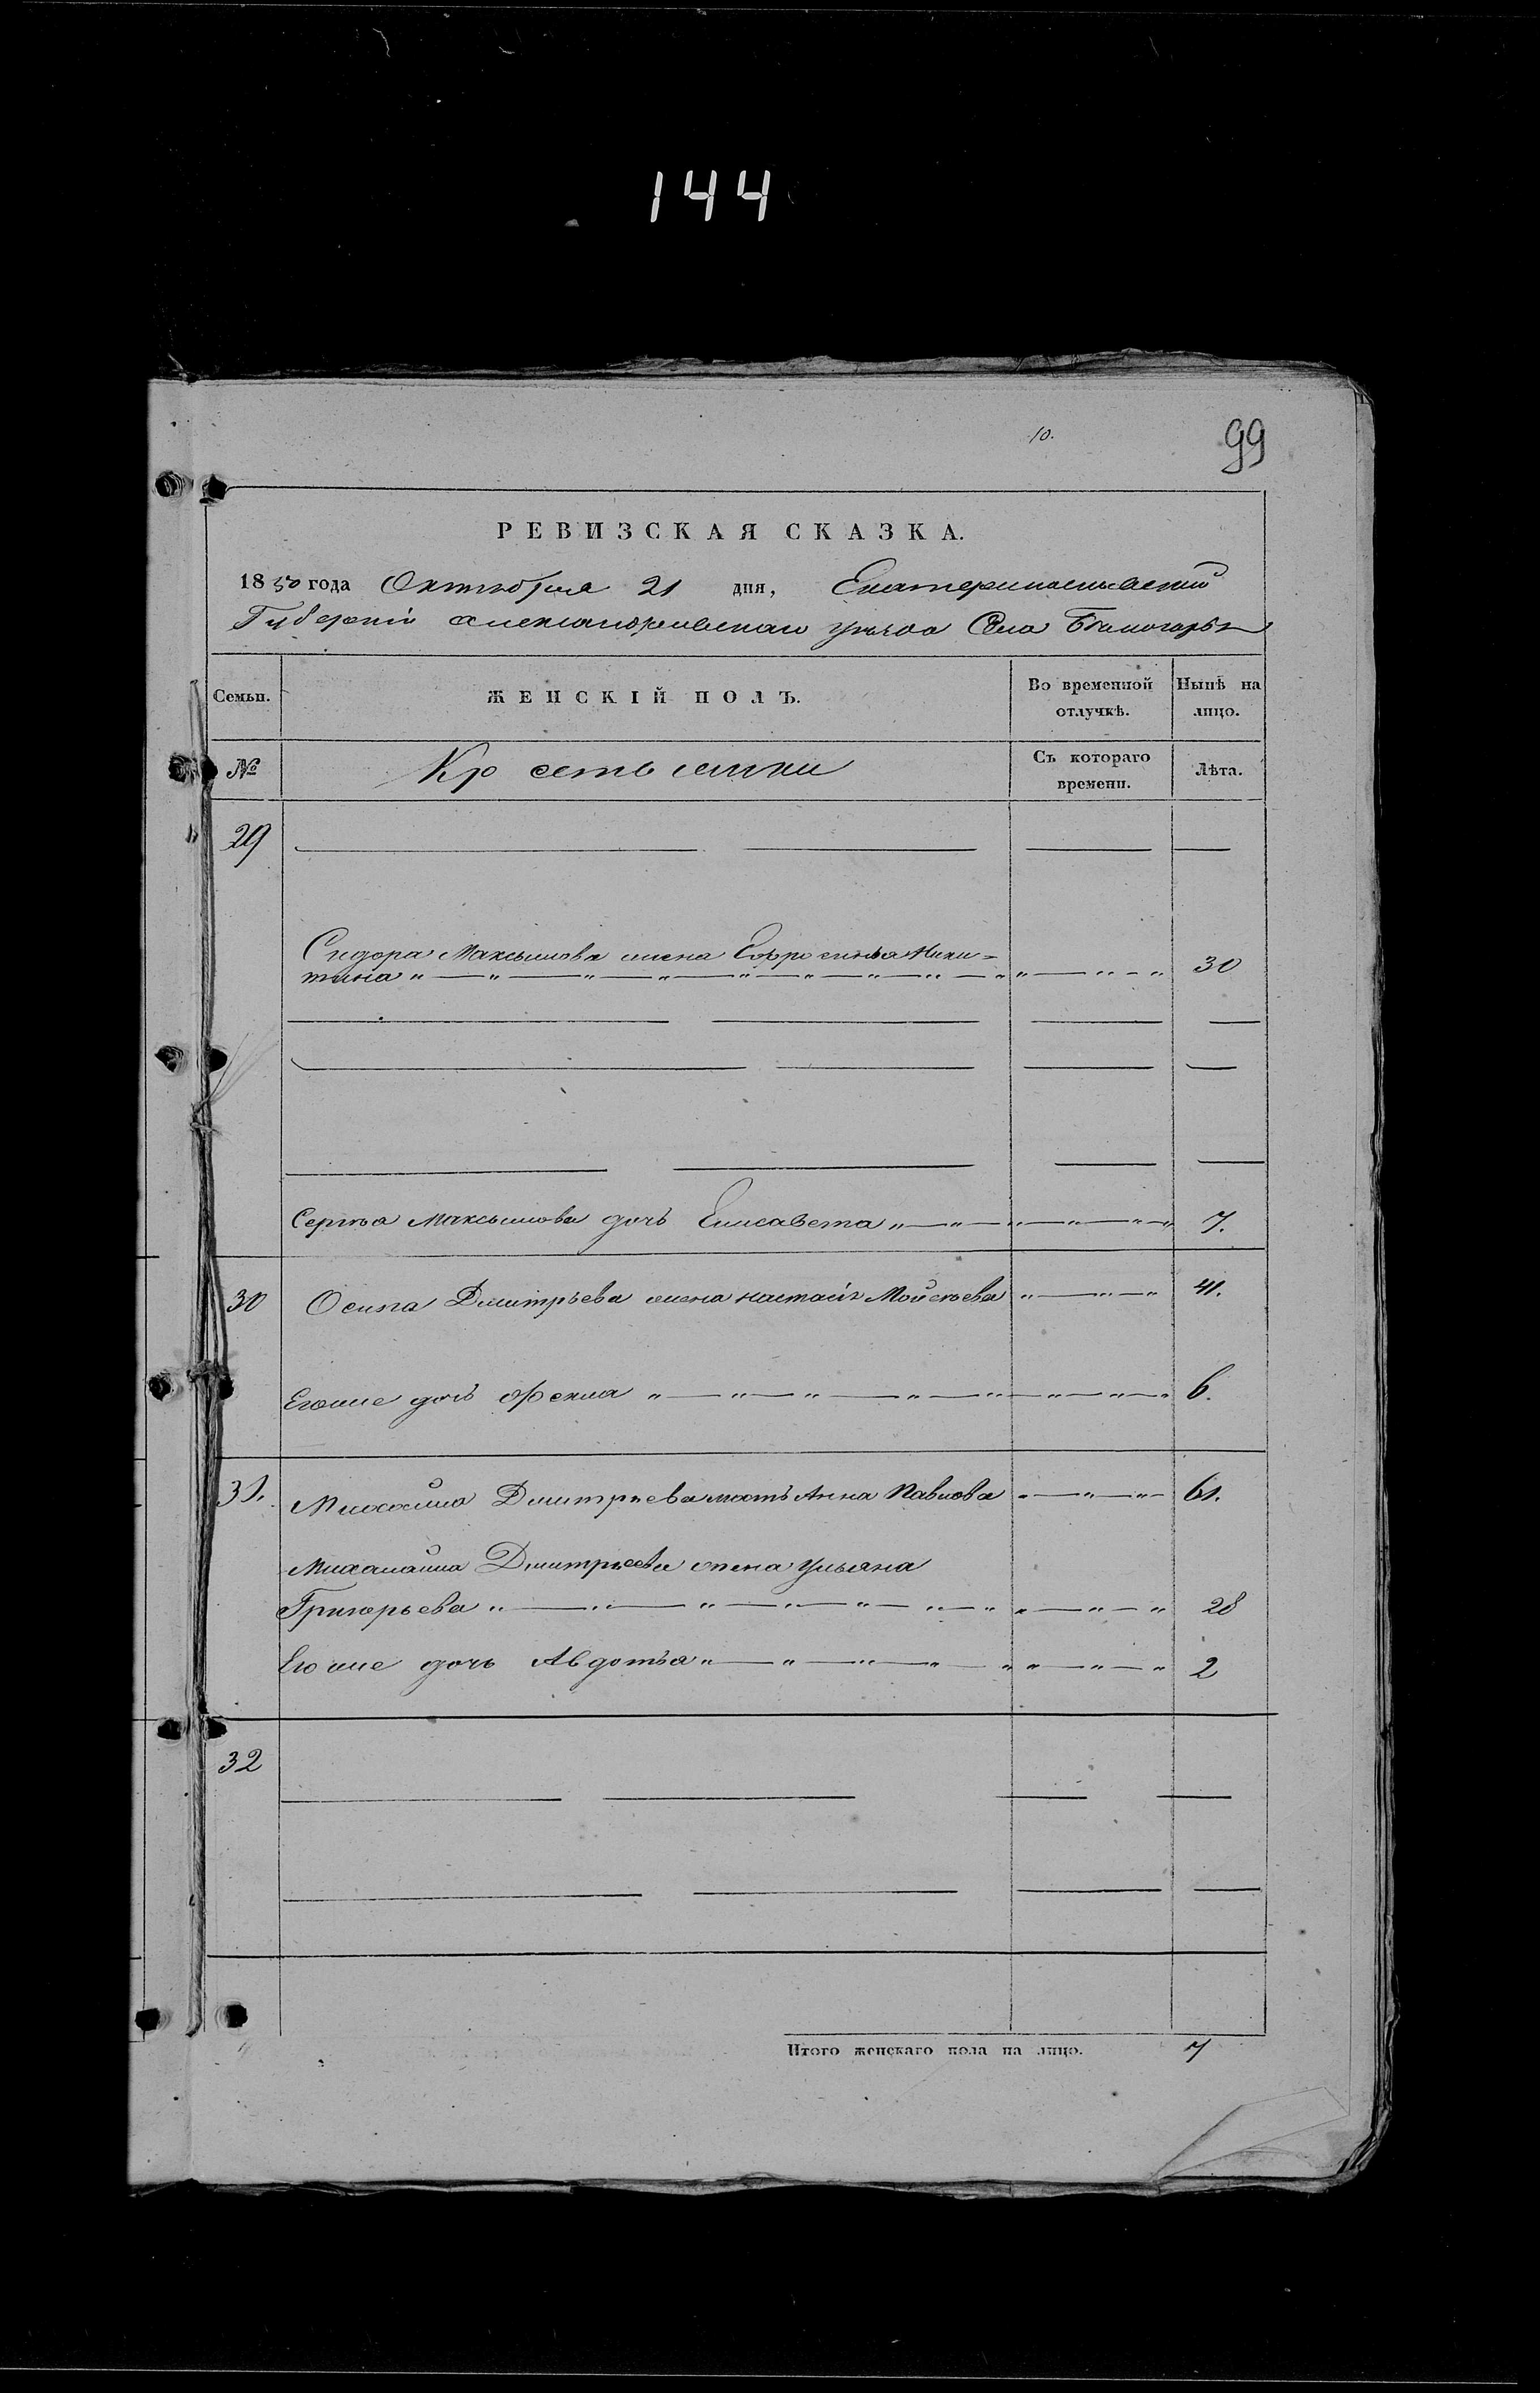 144
10.
99
РЕВИЗСКАЯ СКАЗКА.
1850 года Октября 21 дня, Екатеринославской
Губерніи Александровскаго уѣзда Села
Семьи. ЖЕНСКІЙ ПОЛЪ. Во временной отлучкѣ. Нынѣ на лицо.
№ Крестьянки Съ котораго времени. Лѣта.
29
Сидора Максимова жена Ефросинья Ники=
тина 30
Сергѣя Максимова дочь Елисавета 7.
30 Осипа Дмитрьева жена Настасія Мойсѣева 41.
Егоже дочь Фекла 6.
31. Михайла Дмитріева мать Анна Павлова 61.
Михайла Дмитріева жена Ульяна
Григорьева 28
Егоже дочь Авдотья 2
32
Итого женскаго пола на лицо. 7